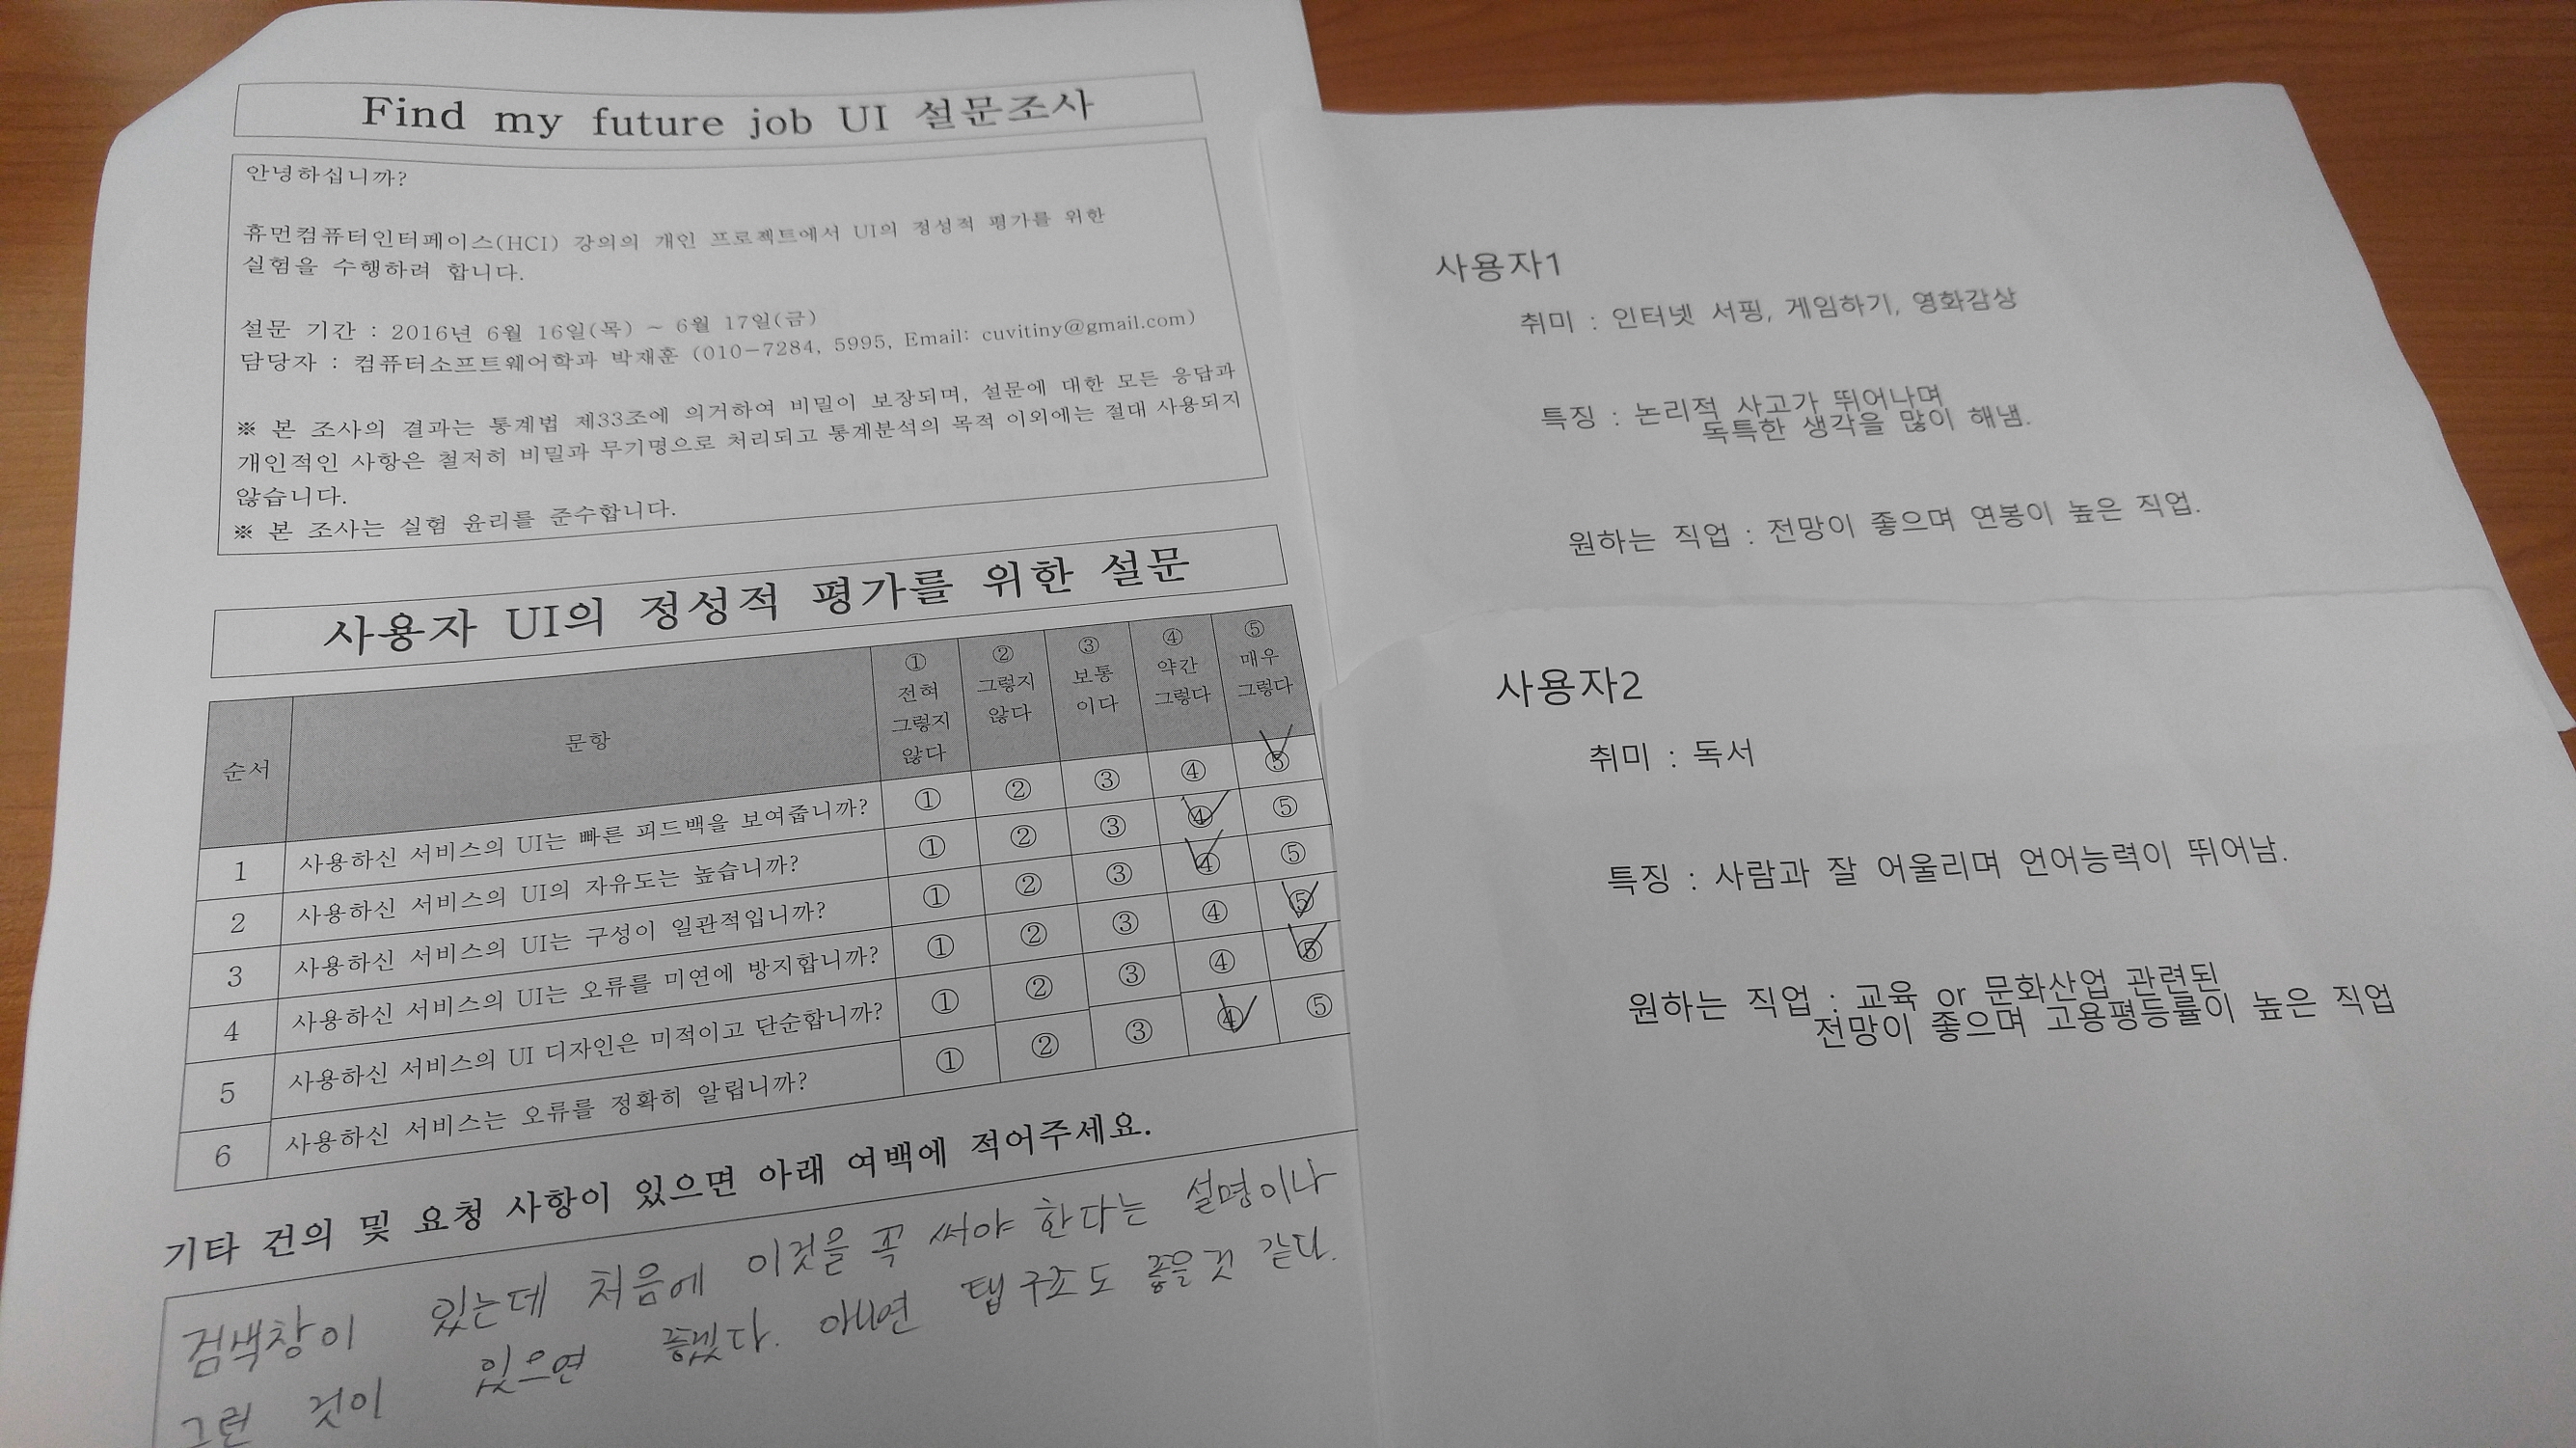 Find my future job UI 설문조사
안녕하십니까?
휴먼컴퓨터인터페이스(HCI) 강의의 개인 프로젝트에서 UI의 정성적 평가를 위한
실험을 수행하려 합니다.
설문 기간 : 2016년 6월 16일(목) ~ 6월 17일(금)
담당자 : 컴퓨터소프트웨어학과 박재훈 (010-7284, 5995, Email: cuvitiny@gmail.com)
※ 본 조사의 결과는 통계법 제33조에 의거하여 비밀이 보장되며, 설문에 대한 모든 응답과
개인적인 사항은 철저히 비밀과 무기명으로 처리되고 통계분석의 목적 이외에는 절대 사용되지
않습니다.
※ 본 조사는 실험 윤리를 준수합니다.
사용자 UI의 정성적 평가를 위한 설문
순서 문항 ① 전혀 그렇지 않다 ② 그렇지 않다 ③ 보통 이다 ④ 약간 그렇다 ⑤ 매우 그렇다
1 사용하신 서비스의 UI는 빠른 피드백을 보여줍니까? ① ② ③ ④ ⑤
2 사용하신 서비스의 UI의 자유도는 높습니까? ① ② ③ ④ ⑤
3 사용하신 서비스의 UI는 구성이 일관적입니까? ① ② ③ ④ ⑤
4 사용하신 서비스의 UI는 오류를 미연에 방지합니까? ① ② ③ ④ ⑤
5 사용하신 서비스의 UI 디자인은 미적이고 단순합니까? ① ② ③ ④ ⑤
6 사용하신 서비스는 오류를 정확히 알립니까? ① ② ③ ④ ⑤
기타 건의 및 요청 사항이 있으면 아래 여백에 적어주세요.
검색창이 있는데 처음에 이것을 꼭 써야 한다는 설명이나
그런 것이 있으면 좋겠다. 아니면 탭구조도 좋을것 같다.
사용자1
취미 : 인터넷 서핑, 게임하기, 영화감상
특징 : 논리적 사고가 뛰어나며
독특한 생각을 많이 해냄.
원하는 직업 : 전망이 좋으며 연봉이 높은 직업.
사용자2
취미 : 독서
특징 : 사람과 잘 어울리며 언어능력이 뛰어남.
원하는 직업 : 교육 or 문화산업 관련된
전망이 좋으며 고용평등률이 높은 직업